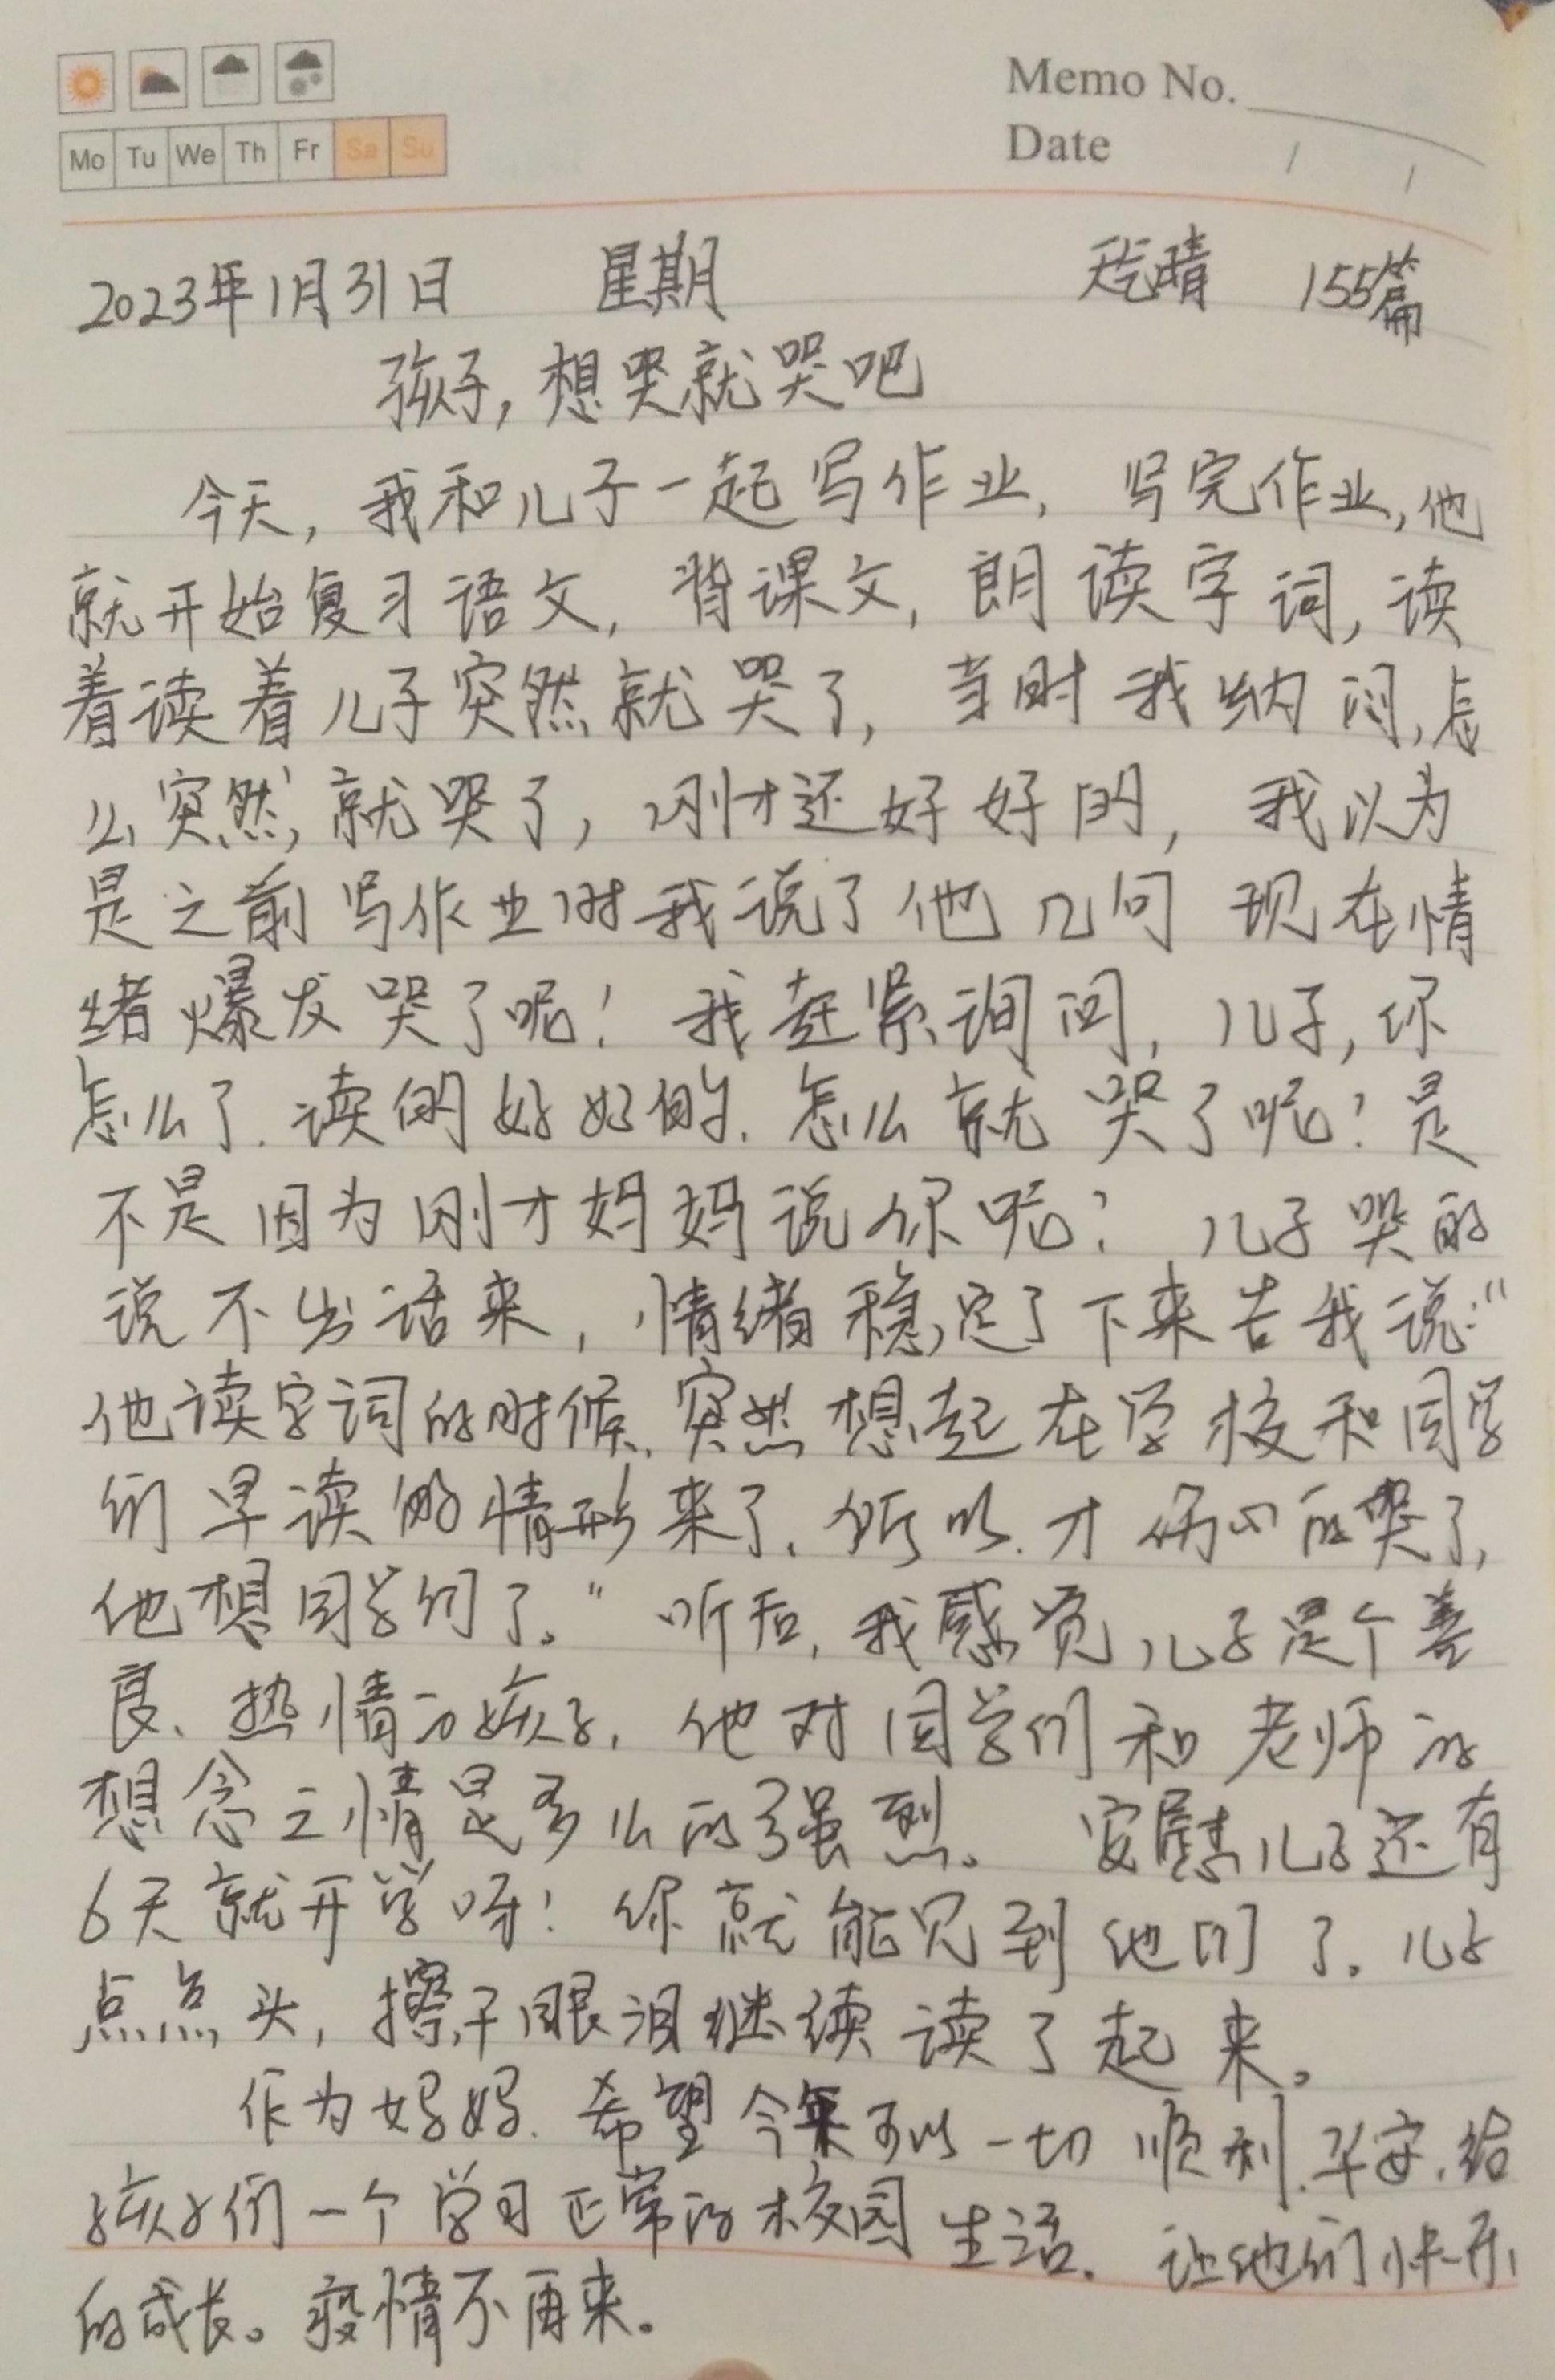 Memo No.
Mo Tu We Th Fr Sa Su
Date / /
2023年1月31日 星期 天气晴 155篇
孩子,想哭就哭吧
今天,我和儿子一起写作业,写完作业,他
就开始复习语文,背课文,朗读字词,读
着读着儿子突然就哭了,当时我纳闷,怎
么突然就哭了,刚才还好好的,我以为
是之前写作业时我说了他几句 现在情
绪爆发哭了呢!我赶紧询问,儿子,你
怎么了.读的好好的.怎么就哭了呢?是
不是因为刚才妈妈说你呢?儿子哭的
说不出话来,情绪稳定了下来告我说:“
他读字词的时候.突然想起在学校和同学
们早读的情形来了.所以.才伤心的哭了,
他想同学们了。”听后,我感觉儿子是个善
良、热情的孩子,他对同学们和老师的
想念之情是多么的强烈。安慰儿子还有
6天就开学呀!你就能见到他们了.儿子
点点头,擦干眼泪继续读了起来。
作为妈妈.希望今年可以一切顺利.平安.给
孩子们一个学习正常的校园生活.让他们快乐
的成长。疫情不再来。